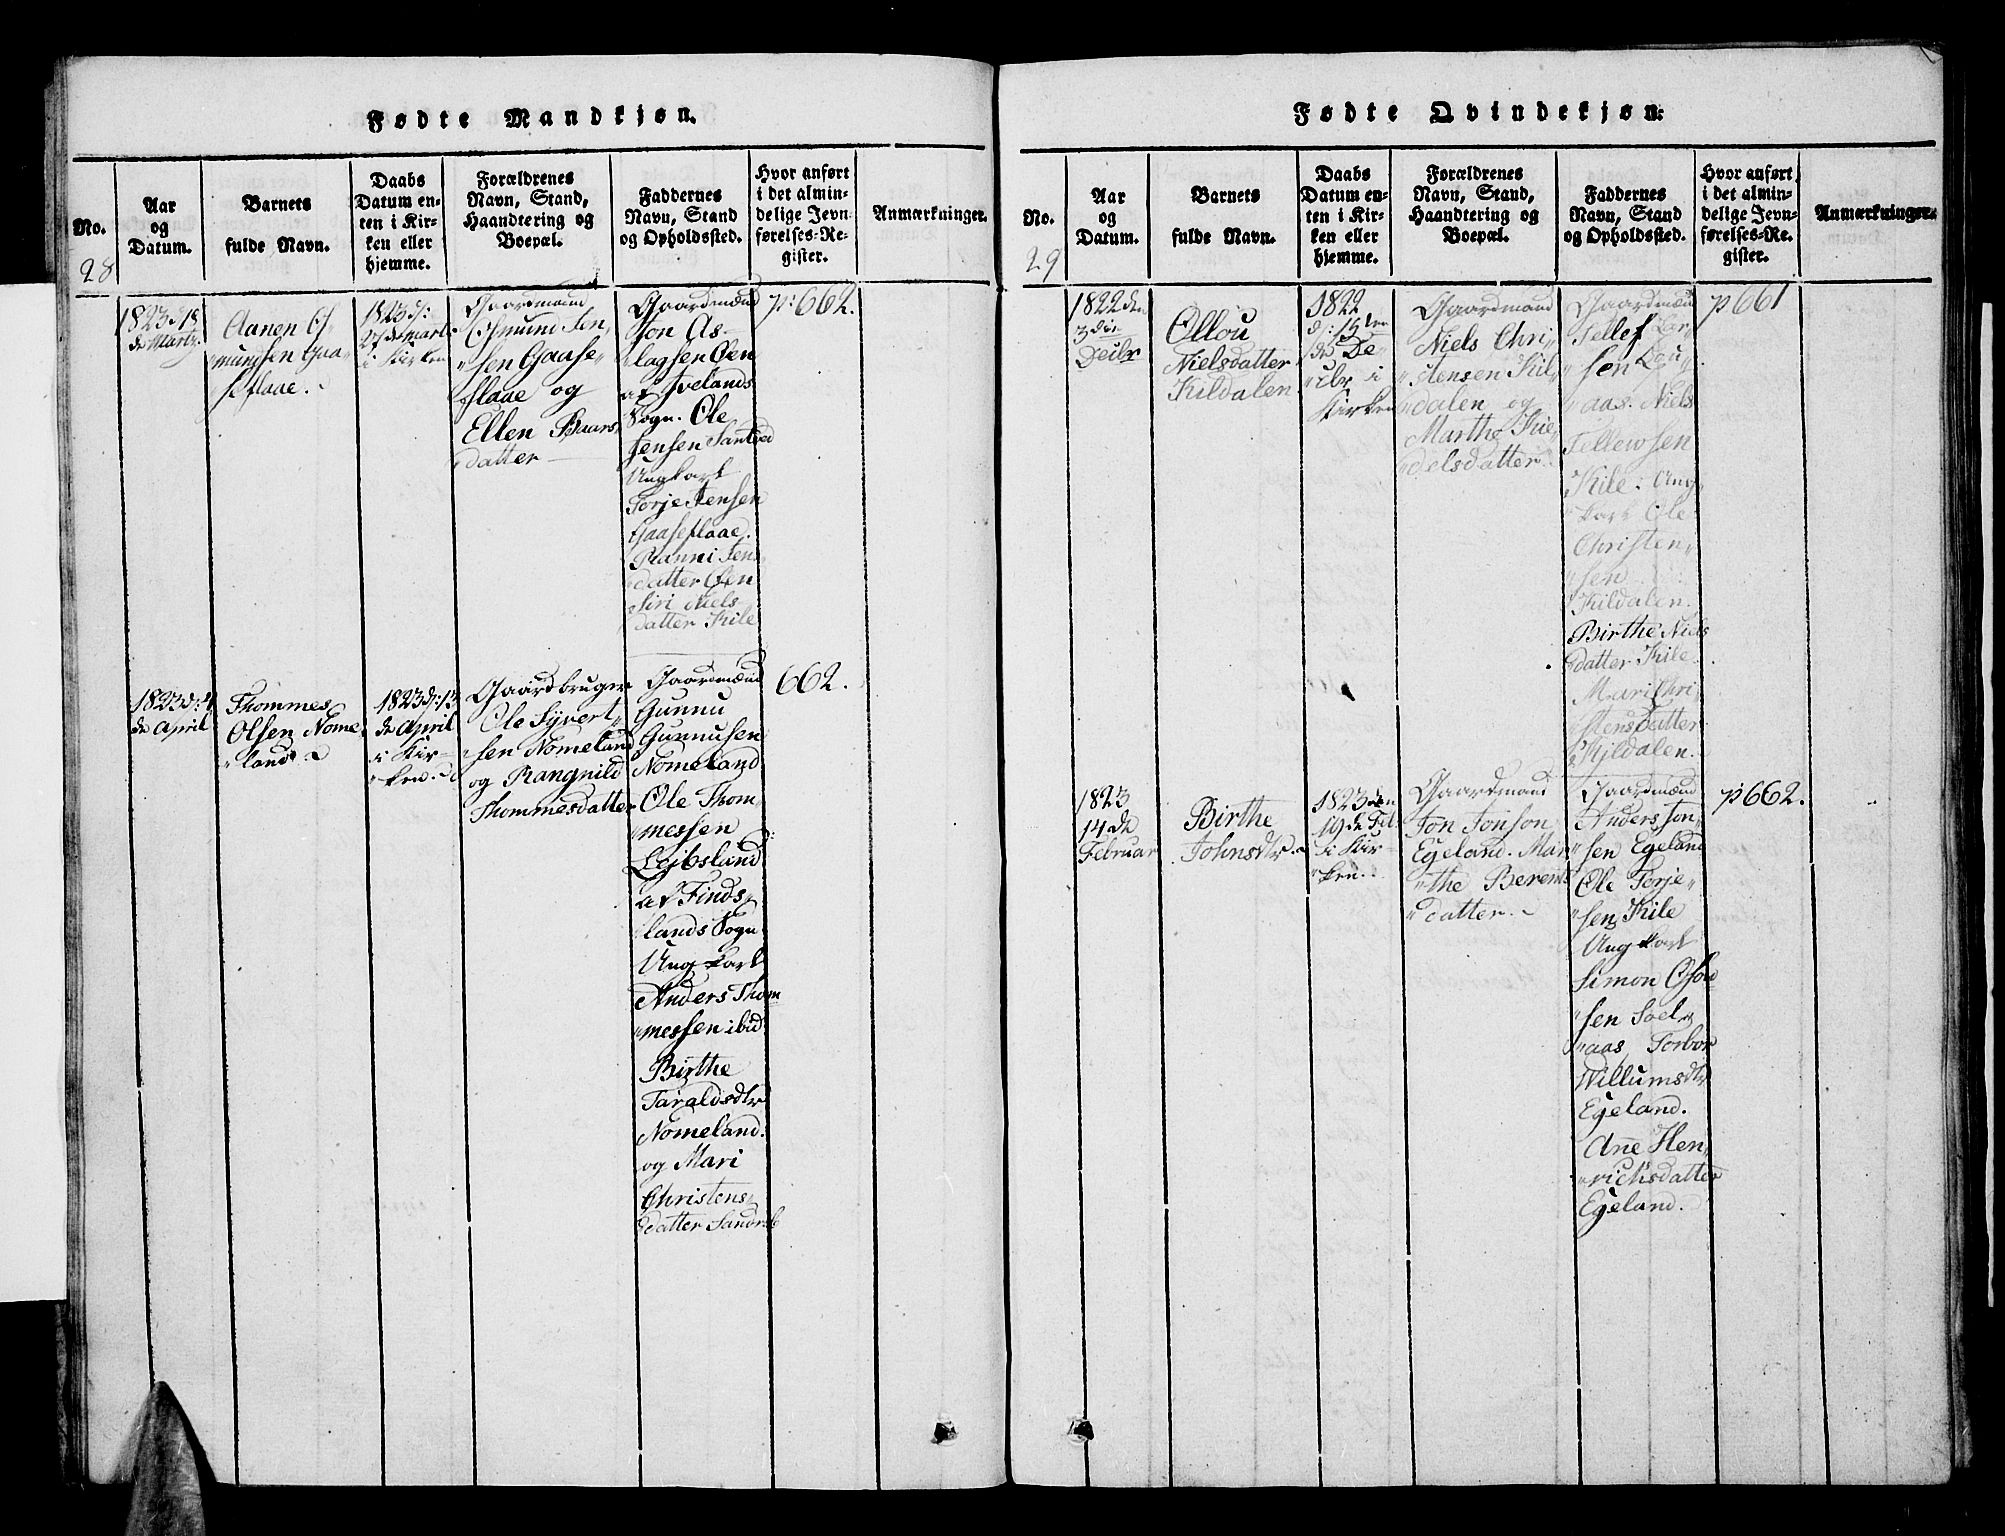 Fødte Mandkjøn.
No.
28
Aar
og
Datum.
Barnets
fulde Navn.
Daabs
Datum en-
ten i Kir-
ken eller
hjemme.
Forældrenes
Navn, Stand,
Haandtering og
Boepæl.
Faddernes
Navn, Stand
og Opholdssted.
Hvor anført
i det almin-
delige Jevn-
førelses-Re-
gister.
Anmærkninger.
1823 d 18
de Martz.
Aanen Os-
mundsen Gaa-
seflaae.
1823 d:
27 de Marti
i Kirken
Gaardmand
Osmund Jen-
sen Gaase-
flaae og
Ellen Baars
datter
Gaardmænd
Jon As-
lagsen Øen
af Ivelands
Sogn. Ole
Jensen
Ungkarl
Torje Jensen
Gaaseflaae.
Ranni Jens
datter Øen
Siri Niels
datter Kile
p: 662.
1823 d: 4
de April
Thommes
Olsen Nome-
land.
1823 d: 13
de April
i Kir-
ken.
Gaardbruger
Ole Syvert-
sen Nomeland
og Rangnild
Thommesdatter
Gaardmænd
Gunnu
Gunnusen
Nomeland
Ole Thom-
messen
Lejbsland
af Finds-
lands Sogn
Ung karl
Anders Thom
messen ibid
Birthe
Taraldsdtr
Nomeland.
og Mari
Christens
datter
662.
Fødte Qvindekjøn.
No.
29
Aar
og
Datum.
Barnets
fulde Navn.
Daabs
Datum en-
ten i Kir-
ken eller
hjemme.
Forældrenes
Navn, Stand,
Haandtering og
Boepæl.
Faddernes
Navn, Stand
og Opholdssted.
Hvor anført
i det almin-
delige Jevn-
førelses-Re-
gister.
Anmærkninger.
1822 den
3die
Decbr
Ollou
Nielsdatter
Kildalen
1822
d: 15 den
de De-
cbr i
Kirken
Gaardmand
Niels Chri-
stensen Kil-
dalen og
Marthe Kie-
delsdatter.
Gaardmænd
Tellef Lar-
sen
aas. Niels
Tellewsen
Kile. Ung-
karl Ole
Christen-
sen
Kildalen.
Birthe Niels
datter Kile.
Mari Chri-
stensdatter
Kildalen.
p 661
1823
14 de
Februar
Birthe
Johnsdtr.
1823 den
19 de Feb.
i Kir-
ken.
Gaardmand
Jon Jonson
Egeland. Mar-
the Berents
datter.
Gaardmænd
Anders Jon-
sen Egeland
Ole Torje-
sen Kile
Ung karl
Simon
sen Soel-
aas, Torbor
Willumsdtr
Egeland.
Ane Hen-
richsdatter
Egeland.
p 662.